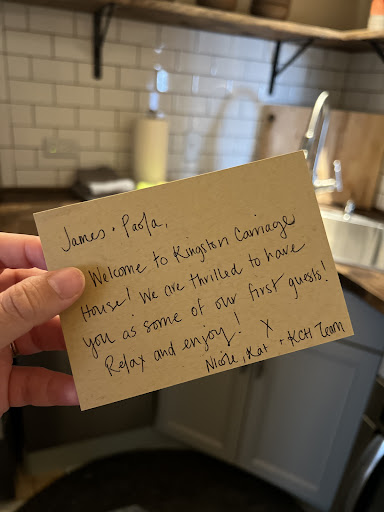 James + Paola,
Welcome to Kingston Carriage
House! We are thrilled to have
you as some of our first guests!
Relax and enjoy! X
Nicole, Kat + KCH Team